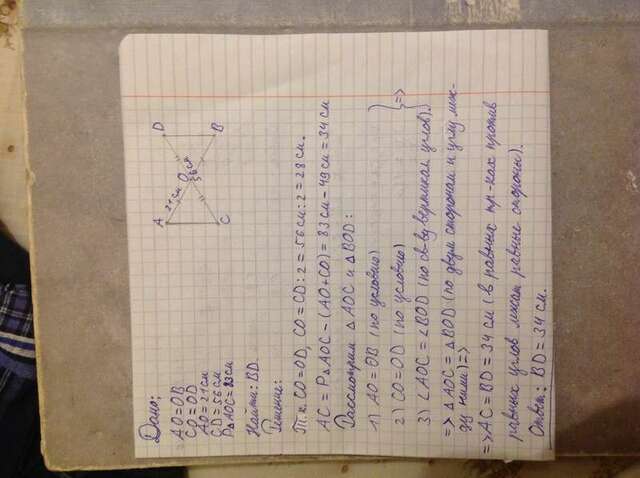 Дано:
AO=OB
CO=OD
AO=21см
CD=56см
P△AOC=83см
Найти: BD.
Решение:
A
D
C
B
O
21см
56см
Т.к. CO=OD, CO=CD:2=56см:2=28см.
AC=P△AOC-(AO+CO)=83см-49см=34см
Рассмотрим △AOC и △BOD:
1) AO=OB (по условию)
2) CO=OD (по условию)
3) ∠AOC=∠BOD (по св-ву вертикал углов). } =>
=> △AOC=△BOD (по двум сторонам и углу меж-
ду ними) =>
=> AC=BD=34см (в равных тр-ках против
равных углов лежат равные стороны).
Ответ: BD=34см.